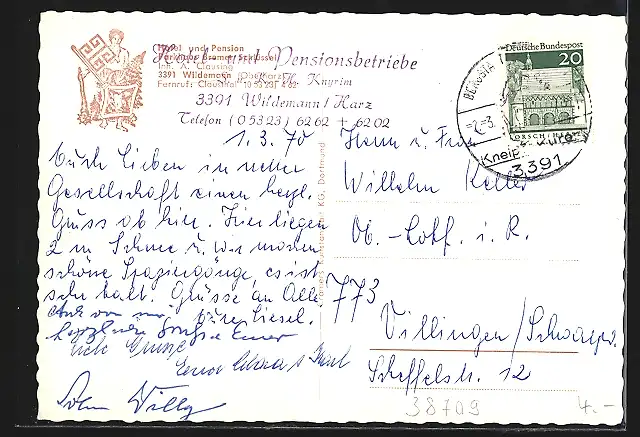 Hotel und Pension
Parkhaus Bremer Schlüssel
Inh. A. Clausing
3391 Wildemann (Oberharz)
Fernruf: Clausthal (0 53 23) 62
Hotel- und Pensionsbetriebe
H. Knyrim
3391 Wildemann/Harz
Telefon (0 53 23) 62 62 + 62 02
Deutsche Bundespost
20
LORSCH/HESSEN
3391
1.3.70
Euch Lieben in netter
Gesellschaft einen herzl.
Gruss ob hin. Hier liegen
2 m Schnee u. wir machen
schöne Spaziergänge, es ist
sehr kalt. Grüsse an Alle
Eure Liesel.
Auch von mir
herzliche Grüsse Euer
viele Grüsse
Willy
Herrn u. Frau
Wilhelm Keller
Ob.-Lokf. i. R.
773
Villingen/Schwarzw.
Scheffelstr. 12
38709
4.-